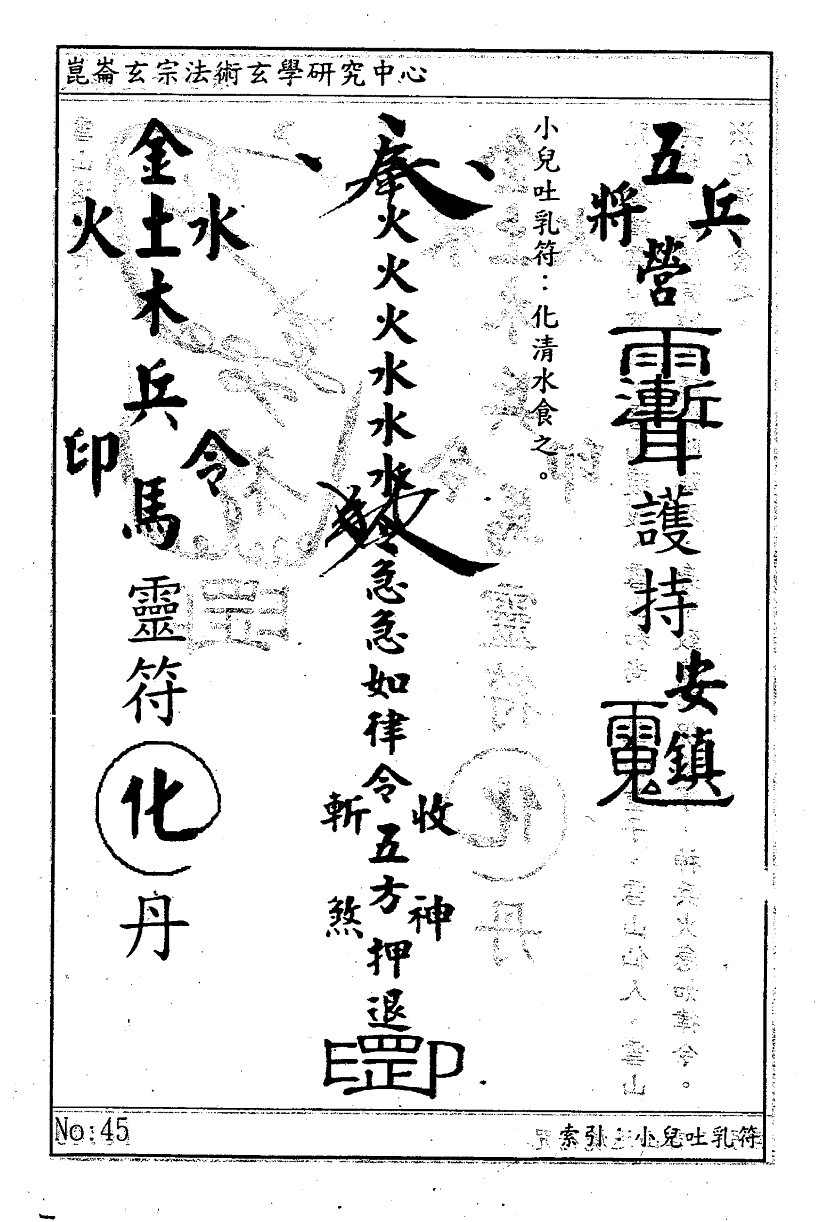 崑崙玄宗法術玄學研究中心
五
將 兵
營
護
持
安
鎮
小兒吐乳符：化清水食之。
奉
火
火
火
水
水
水
急
急
如
律
令
斬 五 收
方
煞 神
押
退
罡
印
金
火 土 水
木
兵
印 令
馬
靈
符
化
丹
No:45
索引：小兒吐乳符